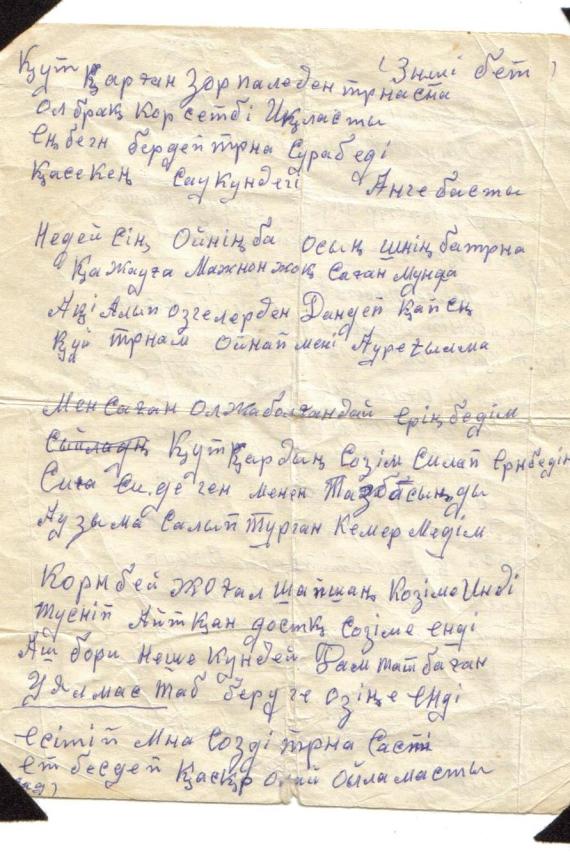 (3нші бет)
Қут Қарған Зорпаледен трнаста
Ол брақ Кор сетбі Иқласты
Еңбегн бердей трна Сураб еді
Қасекең Саукундегі Анге басты
Недей Сің Ойніңба осың шнің ба трна
Қажауға Мажнон жоқ Саған Мунда
Ақі Алып озгелерден Дандеп Қапсң
Қуй трнам Ойнап мені Ауре қылма
Мен Саған Олжаболғандай ерің бедім
Сыйладң Қут Қардың Созім Силап ернбедім
Сиға Си.деген менен Таз басың,ды
Аузыма Салып Турган Кемер Медім
Корнбей Жоғал Шапшаң Козіме Инді
Тусніп Айтқан достқ Созіме енді
Аш бори неше Кундей Дам татбаған
Уялмас таб беруге озіңе енді
есітій Мна Созді трна Састі
ет беседей Қасқр олай ойламасты